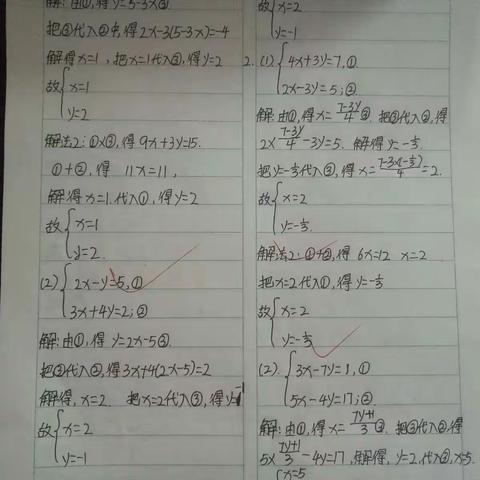 解:由①,得y=5-3x③.
把③代入②中,得2x-3(5-3x)=-4
解得x=1,把x=1代入③,得y=2
故{x=1
y=2
解法2:①×3,得 9x+3y=15.
①+②,得 11x=11,
解得x=1.代入①,得y=2
故{x=1
y=2.
(2){2x-y=5,①
3x+4y=2;②
解:由①,得 y=2x-5③.
把③代入②,得3x+4(2x-5)=2
解得,x=2. 把x=2代入③,得y=-1
故{x=2
y=-1
故{x=2
y=-1
2.(1){4x+3y=7,①
2x-3y=5;②
解:由①,得x=(7-3y)/4③.把③代入②,得
2×(7-3y)/4-3y=5. 解得y=-1/3.
把y=-1/3代入③,得x=(7-3×(-1/3))/4=2.
故{x=2
y=-1/3.
解法2:①+②,得 6x=12 x=2
把x=2代入①,得y=-1/3
故{x=2
y=-1/3
(2).{3x-7y=1,①
5x-4y=17;②.
解:由①,得x=(7y+1)/3③.把③代入②,得
5×(7y+1)/3-4y=17,解得,y=2.代入③,x=5.
{x=5